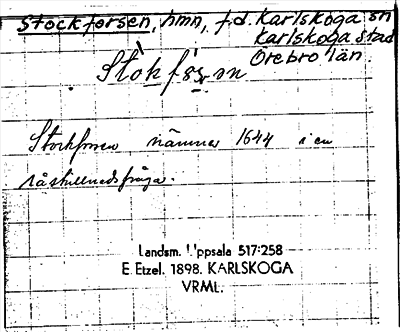 Stockforsen, hmn, f.d. Karlskoga sn
Karlskoga stad
Örebro län.
Stòkfòrsn
Stockforsen nämnes 1644 i en
råskillnadsfråga.
Landsm. Uppsala 517:258
E. Etzel. 1898. KARLSKOGA
VRML.